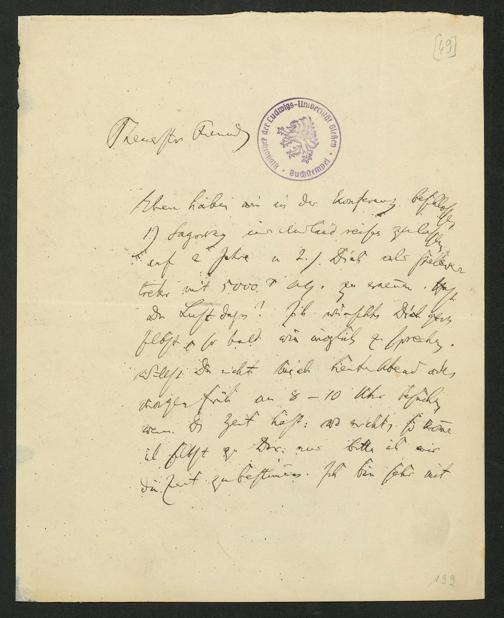 [49]
Bibliothek der Ludwigs-Universität Gießen
Buchstempel
Theuerster Freund,
Eben haben wir in der Konferenz beschlossen
1) Sagorsky ins Ausland reisen zu lassen
auf 2 Jahre u 2.) Dich als
mit 5000 zu ernennen. Hast
Du Lust dazu? Ich wünschte Dich gern
selbst so bald wie möglich zu sprechen.
Willst Du nicht mich heute Abend oder
morgen früh um 8–10 Uhr besuchen
wenn Du Zeit hast: wo nicht, so komme
ich selbst zu Dir: nur bitte ich mir
die Zeit zu bestimmen. Ich bin sehr mit
199